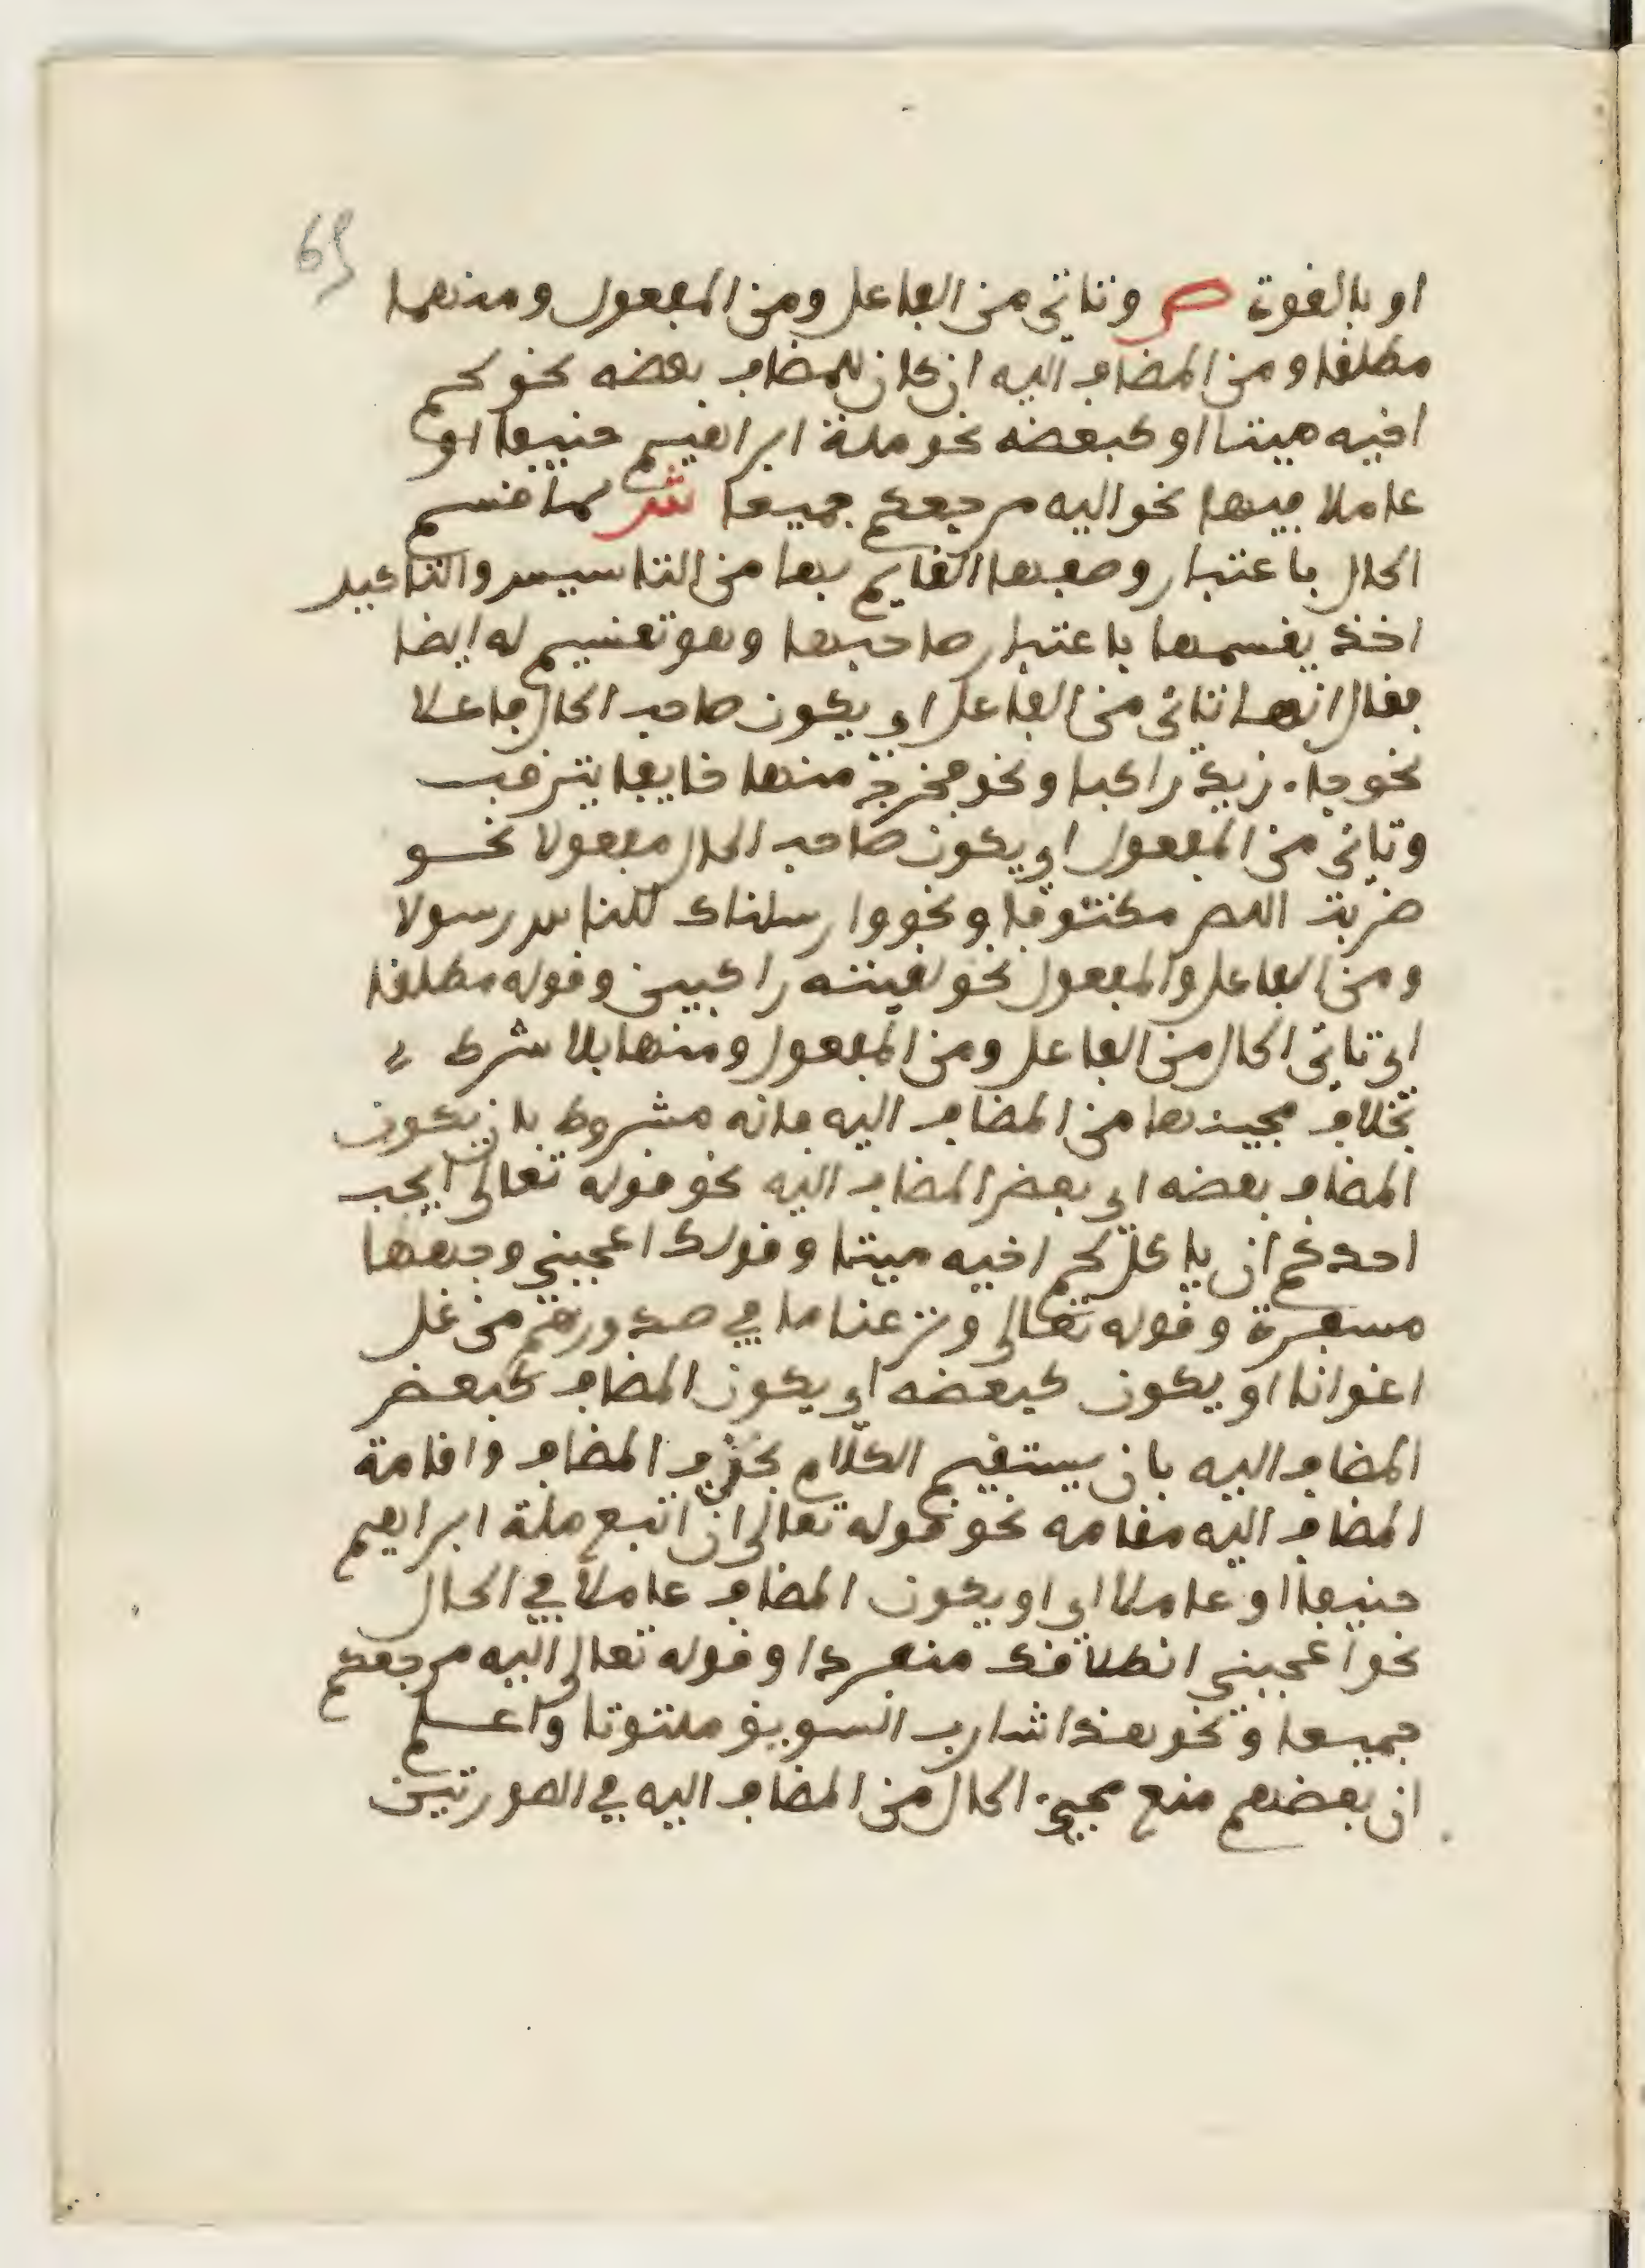 65
او بالقوة ص وتاتي من الفاعل ومن المفعول ومنهما
مطلقا ومن المضاف اليه ان كان المضاف بعضه نحو لحم
اخيه ميتا او كبعضه نحو ملة ابراهيم حنيفا او
عاملا فيها نحو اليه مرجعكم جميعا ش لما قسم
الحال باعتبار وصفها القايم بها من التاسيس والتاكيد
اخذ يقسمها باعتبار صاحبها وهو تقسيم له ايضا
فقال انها تاتي من الفاعل اي يكون صاحب الحال فاعلا
نحو جاء زيد راكبا ونحو فخرج منها خايفا يترقب
وتاتي من المفعول اي يكون صاحب الحال مفعولا نحو
ضربت اللص مكتوفا ونحو وارسلناك للناس رسولا
ومن الفاعل والمفعول نحو لقيته راكبين وقوله مطلقا
اي تاتي الحال من الفاعل ومن المفعول ومنهما بلا شرط
بخلاف مجيئها من المضاف اليه فانه مشروط بان يكون
المضاف بعضه اي بعض المضاف اليه نحو قوله تعالى ايحب
احدكم ان ياكل لحم اخيه ميتا وقولك اعجبني وجهها
مسفرة وقوله تعالى ونزعنا ما في صدورهم من غل
اخوانا او يكون كبعضه اي يكون المضاف كبعض
المضاف اليه بان يستقيم الكلام بحذف المضاف واقامة
المضاف اليه مقامه نحو قوله تعالى ان اتبع ملة ابراهيم
حنيفا او عاملا اي او يكون المضاف عاملا في الحال
نحو اعجبني انطلاقك منفردا وقوله تعالى اليه مرجعكم
جميعا ونحو هذا شارب السويق ملتوتا واعلم
ان بعضهم منع مجيء الحال من المضاف اليه في الصورتين